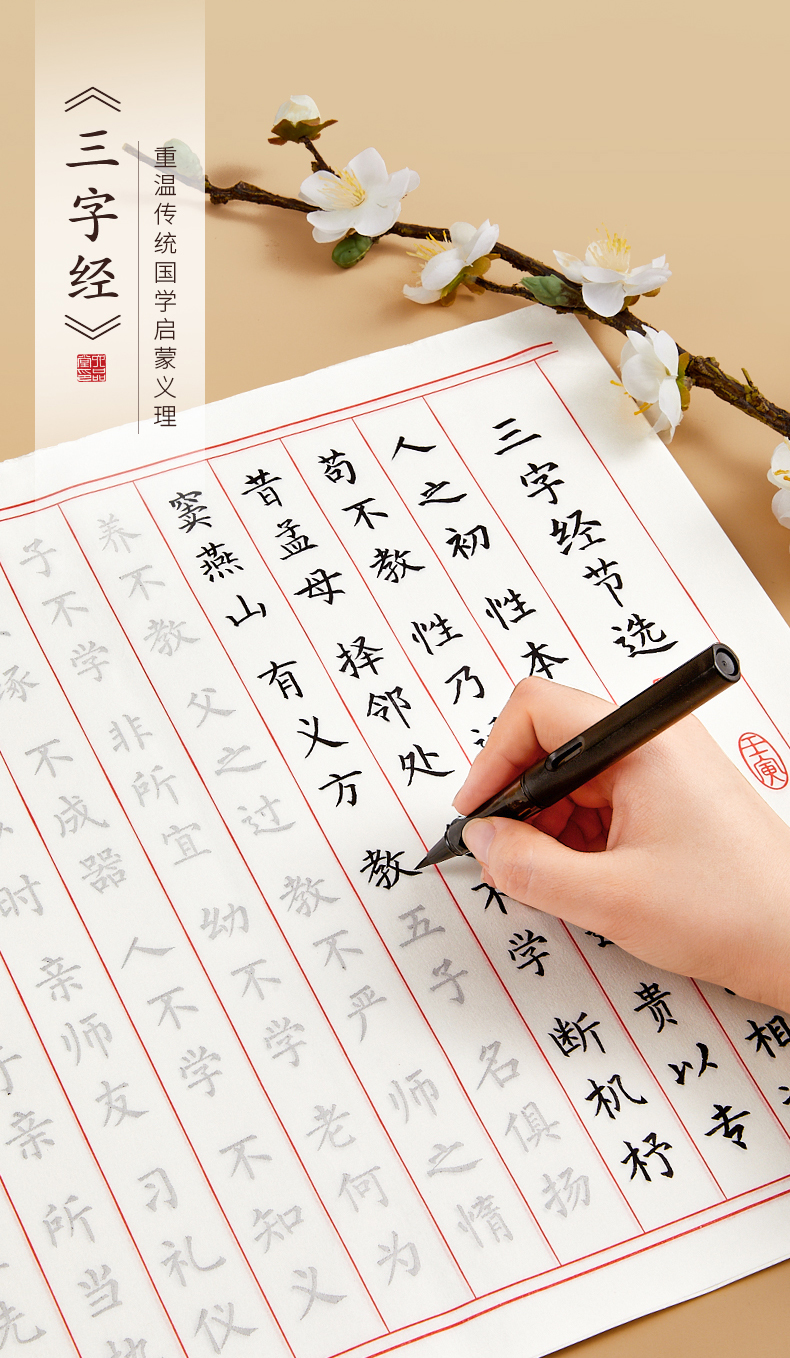 《三字经》
重温传统国学启蒙义理
三字经节选
壬寅
人之初 性本 相
苟不教 性乃 贵以专
昔孟母 择邻处 不学 断机杼
窦燕山 有义方 教五子 名俱扬
养不教 父之过 教不严 师之惰
子不学 非所宜 幼不学 老何为
琢 不成器 人不学 不知义
时 亲师友 习礼仪
于亲 所当执
先